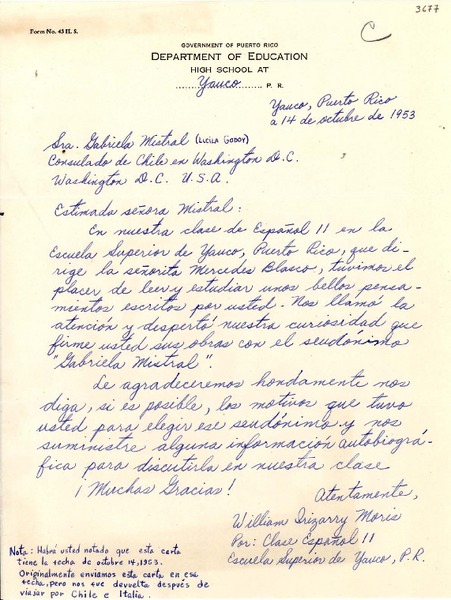 3677
C
Form No. 43 H. S.
GOVERNMENT OF PUERTO RICO
DEPARTMENT OF EDUCATION
HIGH SCHOOL AT
Yauco P. R.
Yauco, Puerto Rico
a 14 de octubre de 1953
Sra. Gabriela Mistral (LUCILA GODOY)
Consulado de Chile en Washington D.C.
Washington D.C. U.S.A.
Estimada señora Mistral:
En nuestra clase de Español 11 en la
Escuela Superior de Yauco, Puerto Rico, que di-
rige la señorita Mercedes Blasco, tuvimos el
placer de leer y estudiar unos bellos pensa-
mientos escritos por usted. Nos llamó la
atención y dispertó nuestra curiosidad que
firme usted sus obras con el seudónimo
"Gabriela Mistral".
Le agradeceremos hondamente nos
diga, si es posible, los motivos que tuvo
usted para elegir ese seudónimo y nos
suministre alguna información autobiográ-
fica para discutirla en nuestra clase
¡Muchas Gracias!
Atentamente,
William Irizarry Moris
Por: Clase Español 11
Escuela Superior de Yauco, P.R.
Nota: Habrá usted notado que esta carta
tiene la fecha de octubre 14, 1953.
Originalmente enviamos esta carta en esa
fecha, pero nos fue devuelta después de
viajar por Chile e Italia.